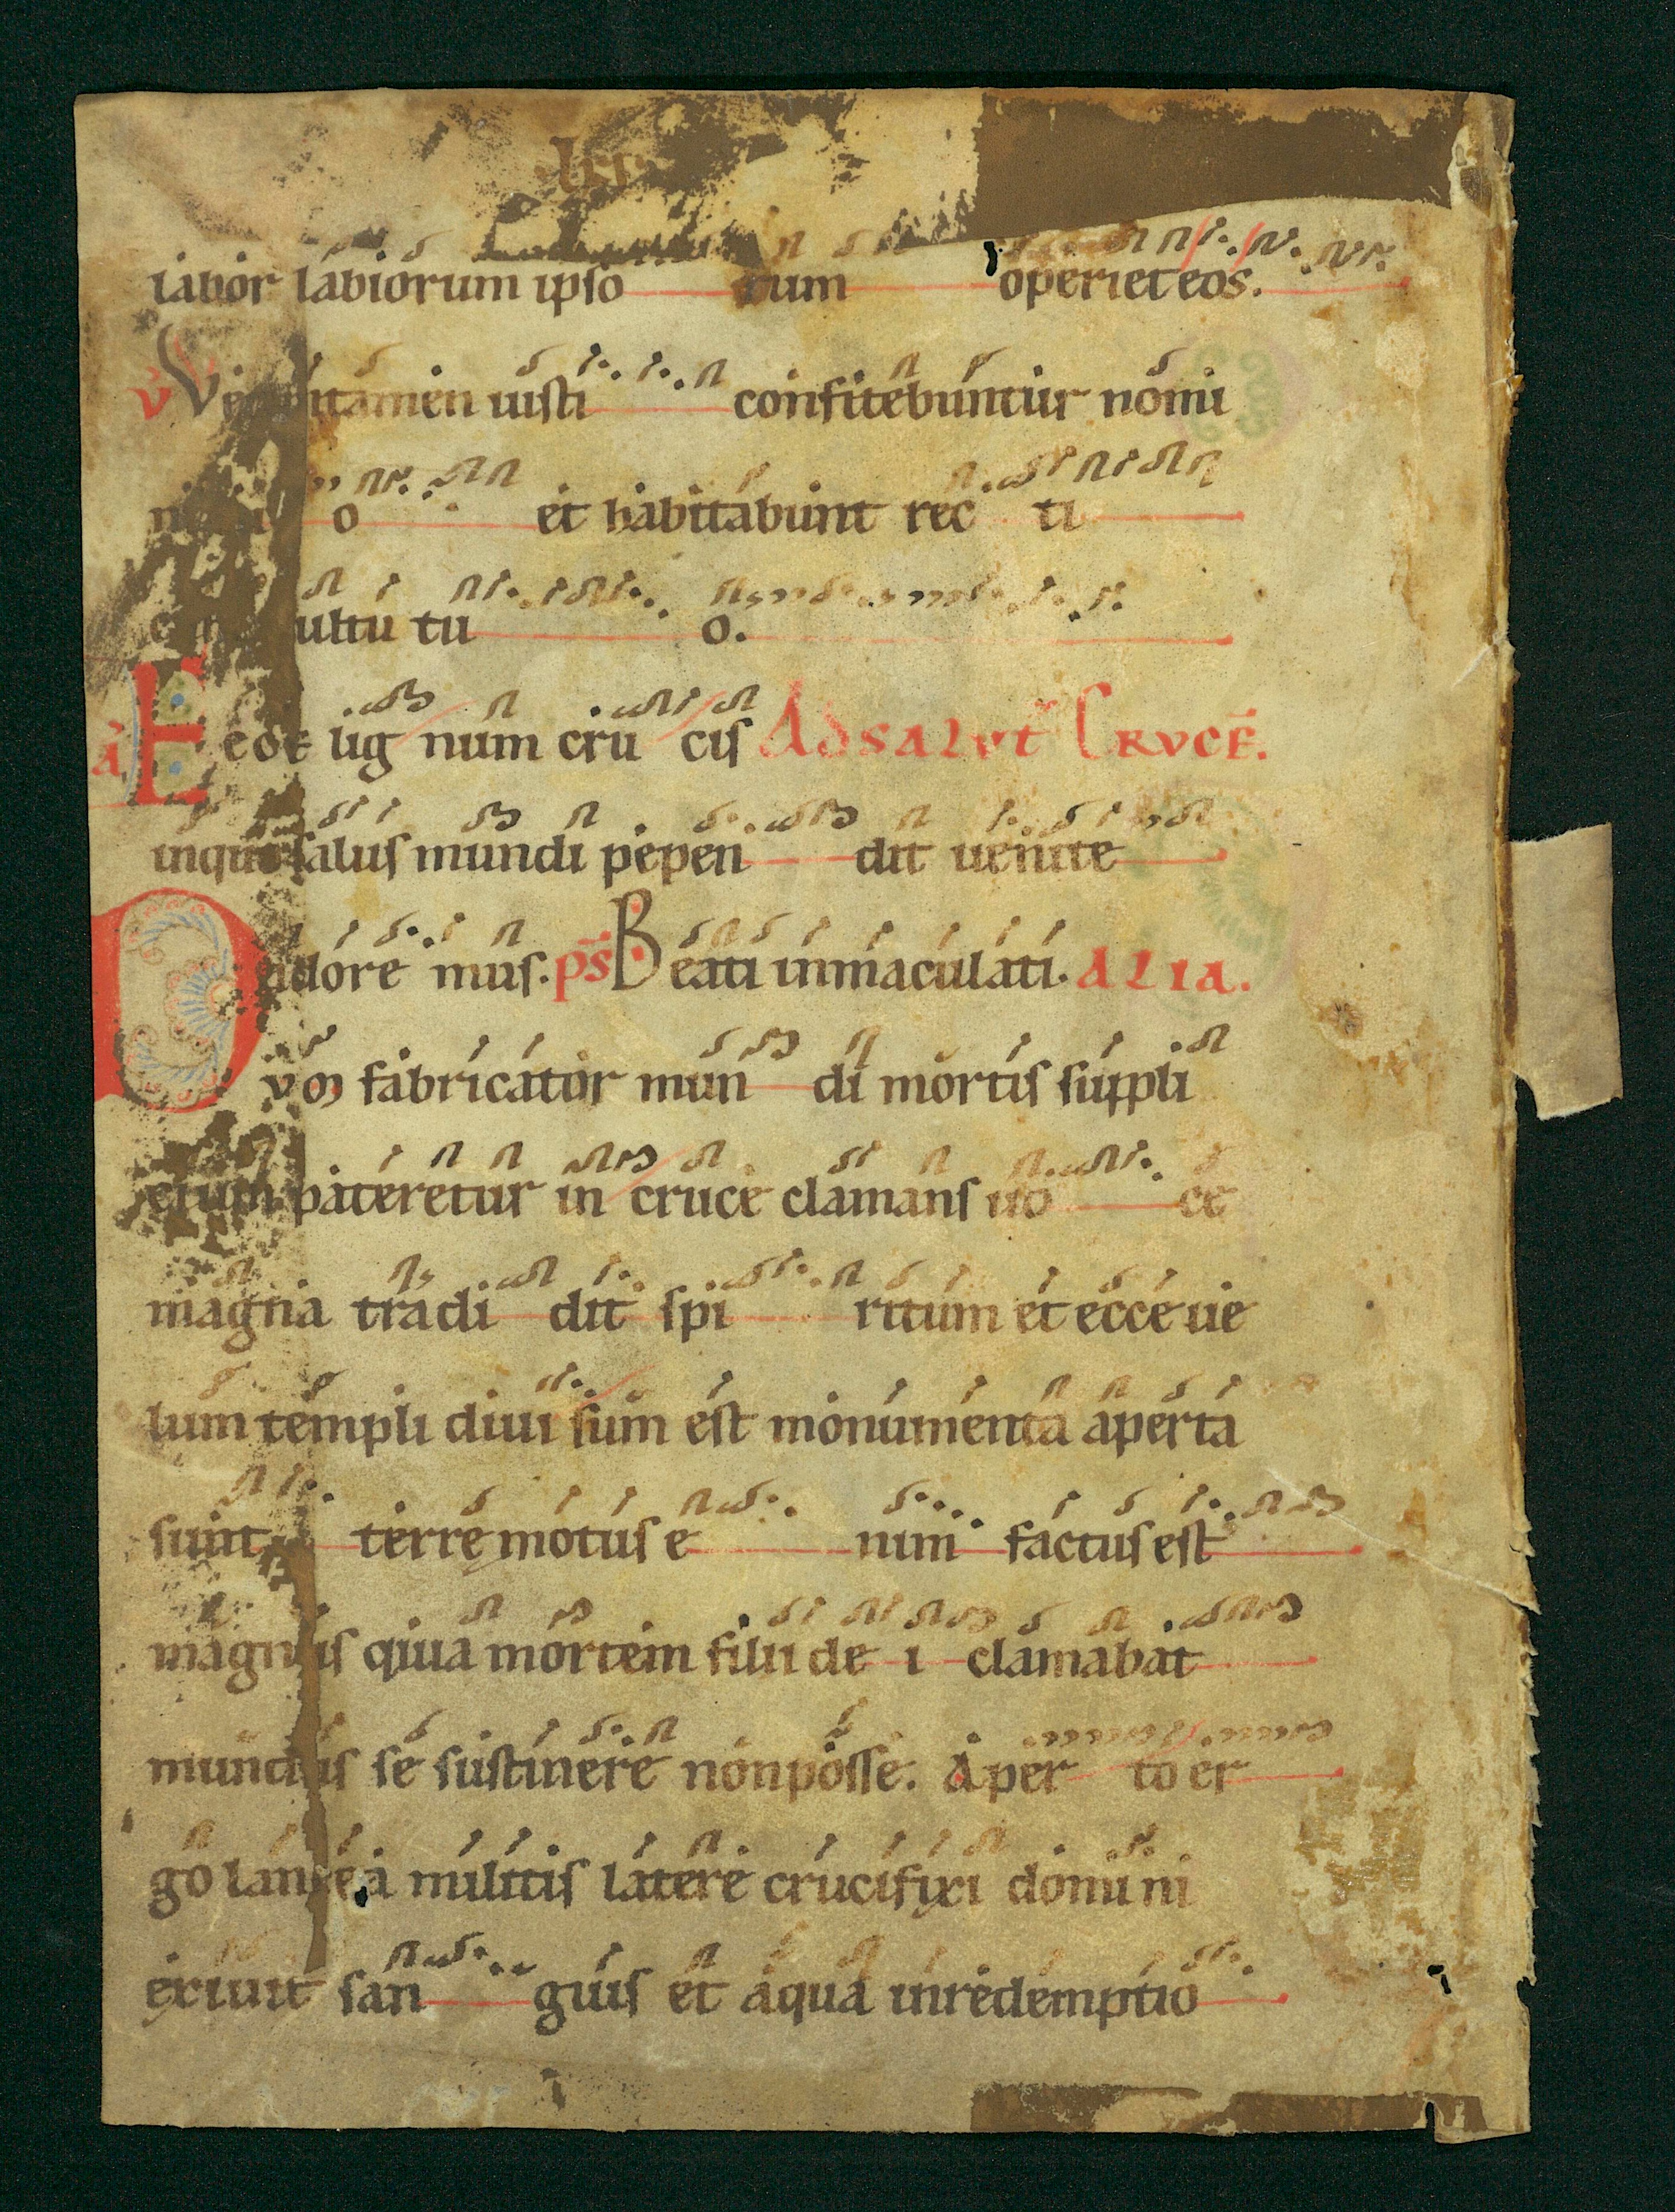 labor labiorum ipso rum operiet eos.
V̉ Ve tamen iusti confitebuntur nomi
o et habitabunt rec ti
ultu tu o.
A̓ Ecce lig num cru cis Ad salvt̄ Crvcē.
inquo salus mundi pepen dit uenite
adore mus. p̄s Beati inmaculati. ALIA.
Dvm fabricator mun di mortis suppli
cium pateretur in cruce clamans uo ce
magna tradi dit spi ritum et ecce ue
lum templi diui sum est monumenta aperta
sunt terre motus e nim factus est
magnus quia mortem filii de i clamabat
mundus se sustinere non posse. Aper to er
go lancea militis latere crucifixi domi ni
exiuit san guis et aqua in redemptio